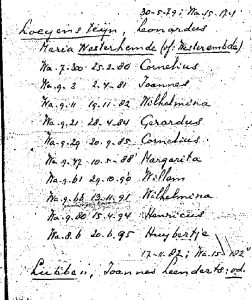 30-5-79; Wa. 15-174
Loeyensteijn, Leonardus
Maria Westerhende (of: Westerembda)
Wa.7-30 - 25-2-80 Cornelius
Wa.9-2 2-4-81 Joannes
Wa.9-11 19-11-82 Wilhelmina
Wa.9-21 28-4-84 Gerardus
Wa.9-29 20-9-85 Cornelius
Wa.9-47-10-5-88 Margarita
Wa.9-61-29-10-90 Willem
Wa.9-66 13-11-91 Wilhelmina
Wa.9-80 15-4-94 Henricus
Wa.8-6 20-6-95 Huybertje
17-11-82; Wa.15-182
Lutiben, Joannes Leenderts: od.